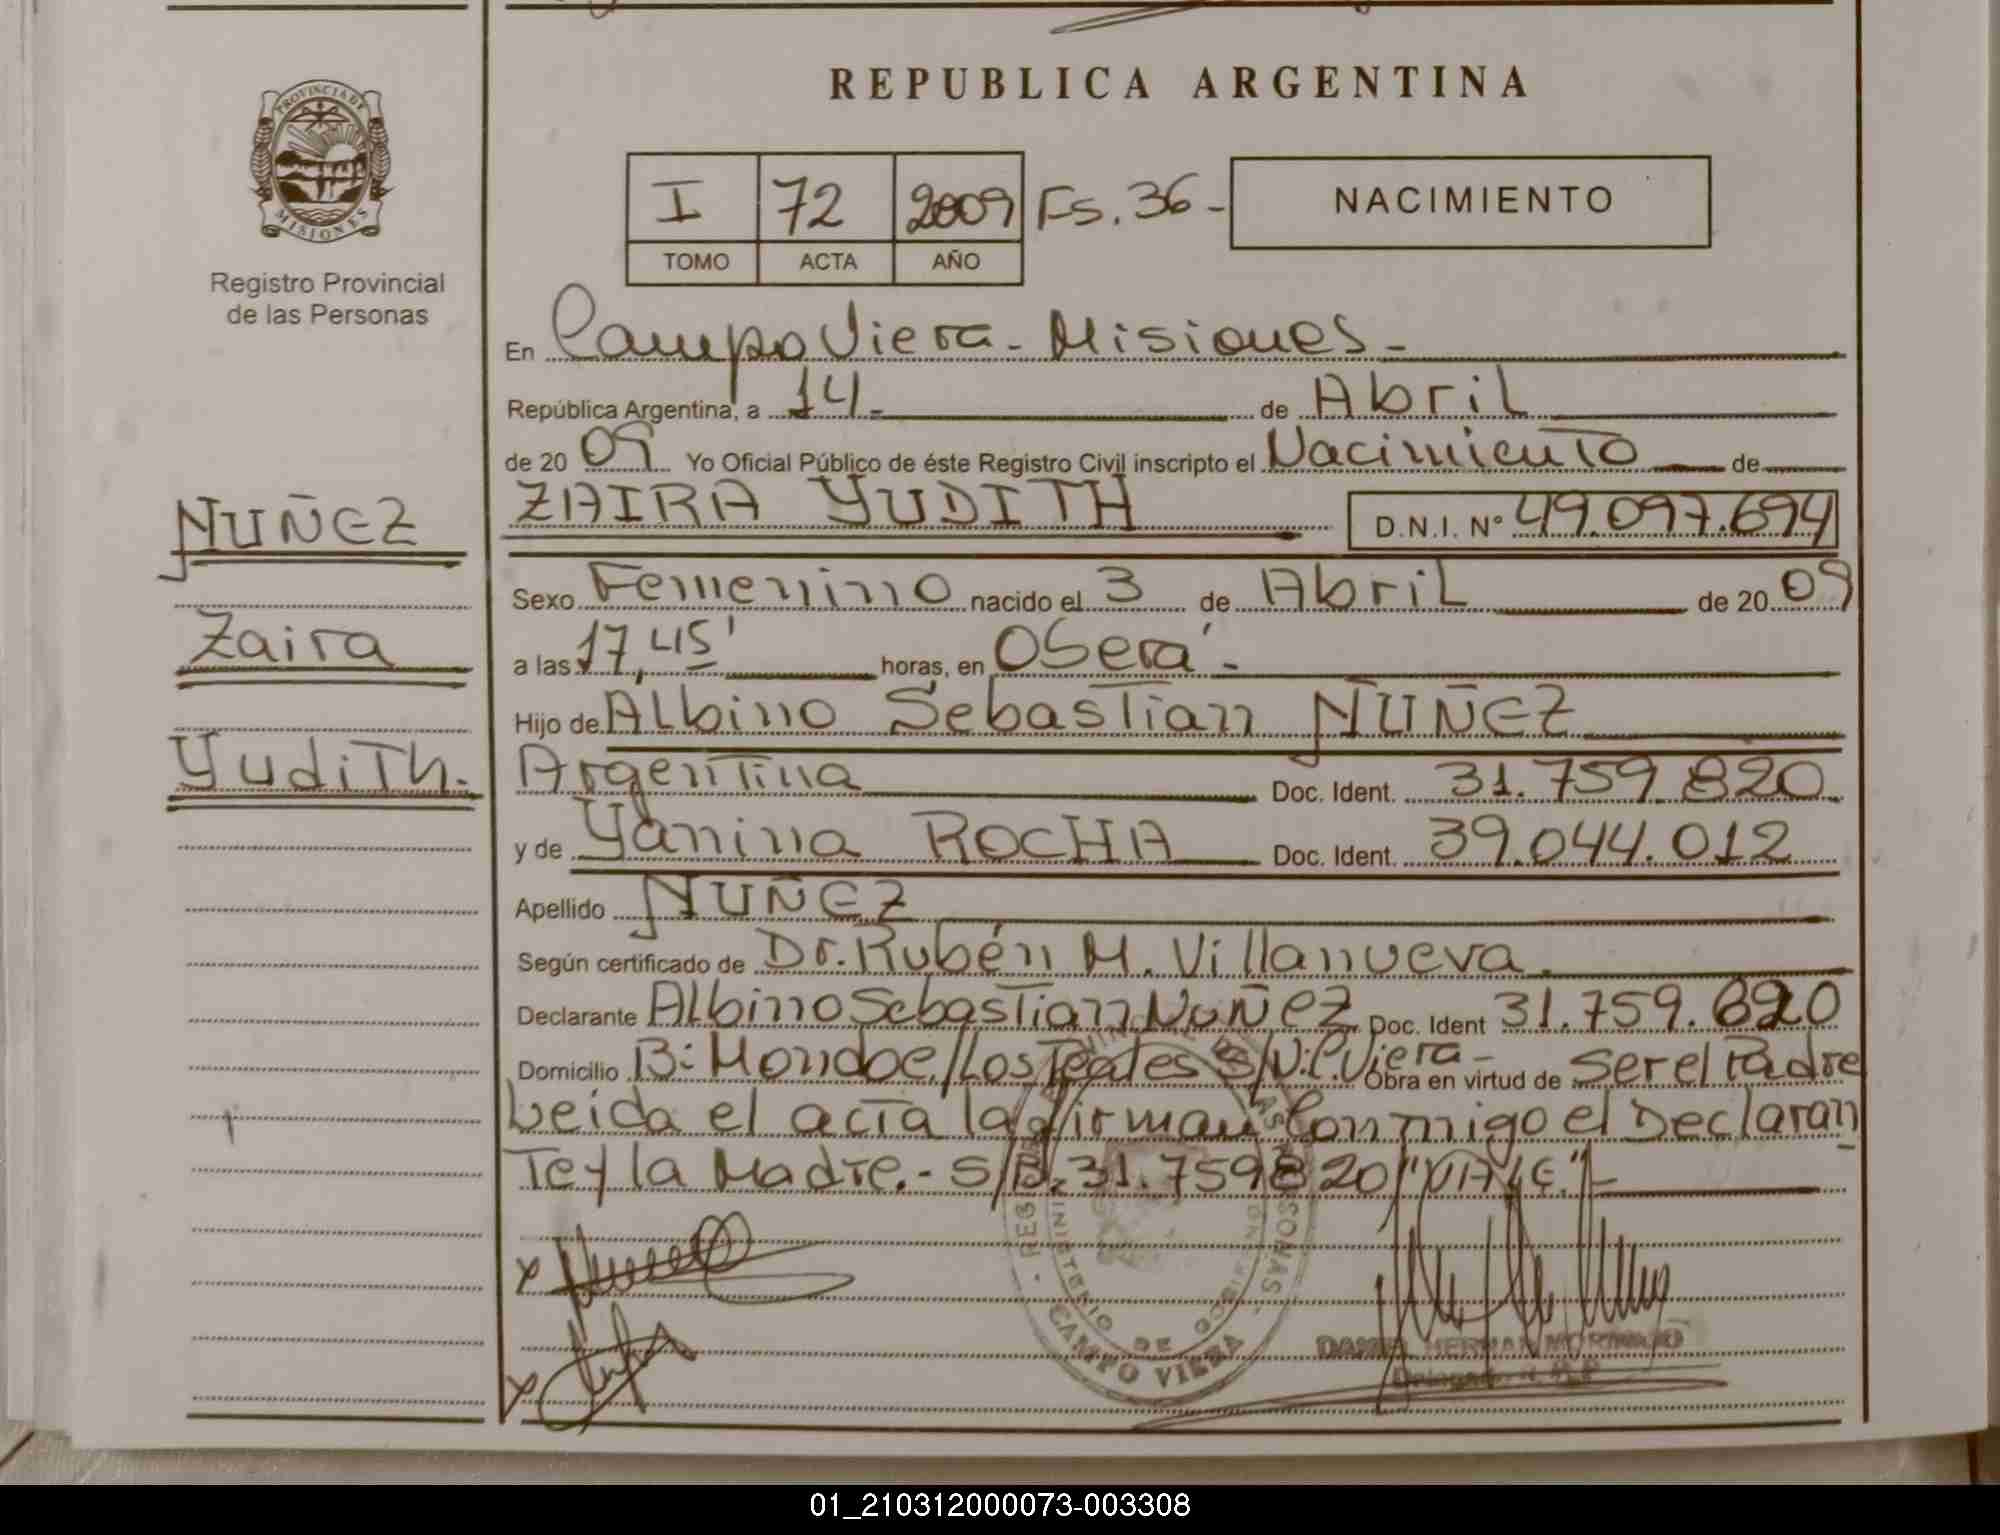 REPUBLICA ARGENTINA
PROVINCIA DE
MISIONES
Registro Provincial
de las Personas
I 72 2009 Fs. 36-
TOMO ACTA AÑO
NACIMIENTO
En Campo Viera - Misiones -
República Argentina, a 14- de Abril
de 20 09 Yo Oficial Público de éste Registro Civil inscripto el Nacimiento de
ZAIRA YUDITH D.N.I. Nº 49.097.694
NUÑEZ
Zaira
Yudith.
Sexo Femenino nacido el 3 de Abril de 20 09
a las 17,45' horas, en Oberá -
Hijo de Albino Sebastian NUÑEZ
Argentina Doc. Ident. 31.759.820
y de Yanina ROCHA Doc. Ident. 39.044.012
Apellido NUÑEZ
Según certificado de Dr. Rubén M. Villanueva.
Declarante Albino Sebastian Nuñez Doc. Ident 31.759.820
Domicilio B: Los Teales S/N. C. Viera - Obra en virtud de ser el Padre
Leida el acta la firman Conmigo el Declaran
Te y la Madre. - S/B. 31.759820 "VALE." -
MINISTERIO DE GOBIERNO
CAMPO VIERA
01_210312000073-003308